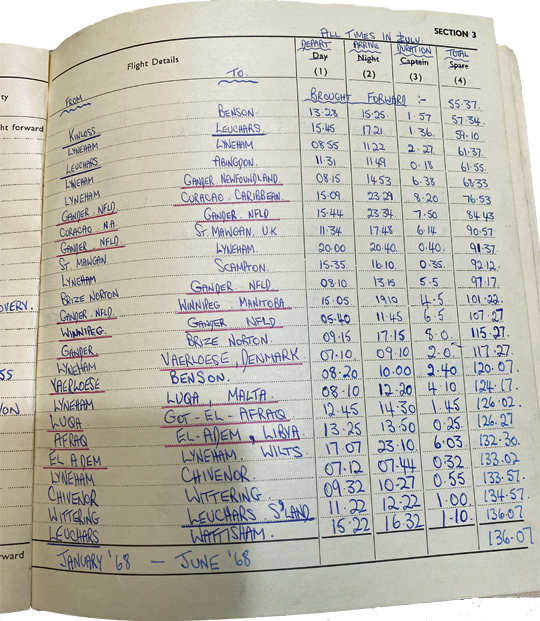 ALL TIMES IN ZULU. SECTION 3
DEPART ARRIVE DURATION TOTAL
Flight Details Day Night Captain Spare
FROM TO. (1) (2) (3) (4)
BROUGHT FORWARD :- 55.37.
KINLOSS BENSON. 13:28 15:25 1.57 57.34.
LYNEHAM LEUCHARS. 15:45 17.21 1.36 59.10
LEUCHARS LYNEHAM 08:55 11:22 2.27 61.37
LYNEHAM ABINGDON. 11.31 11.49 0.18 61.55.
LYNEHAM GANDER NEWFOUNDLAND 08:15 14.53 6.38 68:33
GANDER. NFLD CURACAO. CARIBBEAN. 15.09 23.29 8.20 76.53
CURACAO. N.A. GANDER. NFLD 15.44 23.34 7.50 84.43
GANDER. NFLD. ST. MAWGAN. U.K 11.34 17.48 6.14 90.57
ST. MAWGAN LYNEHAM. 20.00 20.40. 0.40. 91.37
LYNEHAM SCAMPTON. 15.35. 16.10 0.35. 92.12.
BRIZE NORTON GANDER. NFLD 08.10 13.15 5.5 97.17
GANDER. NFLD WINNIPEG. MANITOBA. 15.05. 1910 4.5 101.22
WINNIPEG. GANDER NFLD 05.40 11.45 6.5 107.27
GANDER. BRIZE NORTON. 09.15 17.15 8.0 115.27
LYNEHAM VAERLOESE, DENMARK 07.10 09.10 2.0 117.27
VAERLOESE BENSON. 08.20 10.00 2.40 120.07
LYNEHAM LUQA, MALTA 08.10 12.20 4.10 124.17
LUQA GOT-EL-AFRAQ 12.45 14.30 1.45 126.02
AFRAQ EL-ADEM, LIBYA 13.25 13.50 0.25 126.27
EL ADEM LYNEHAM. WILTS. 17.07 23.10 6.03 132.30
LYNEHAM CHIVENOR. 07.12 07.44 0.32 133.02
CHIVENOR WITTERING. 09.32 10.27 0.55 133.57
WITTERING LEUCHARS S'LAND 11.22 12.22 1.00 134.57
LEUCHARS WATTISHAM. 15.22 16.32 1.10. 136.07
136.07
JANUARY '68 — JUNE '68
ty
ht forward
OVERY.
SS
ON
ward